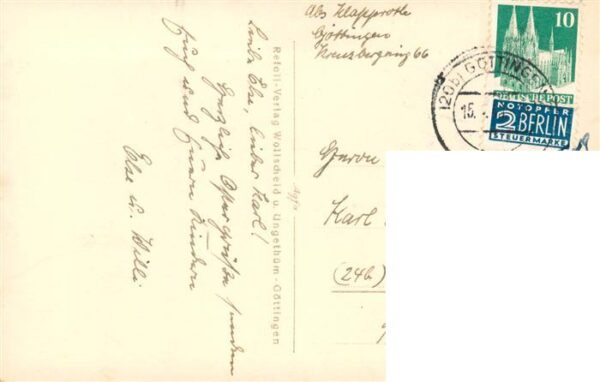 Abs Klapproth
Göttingen
Kreuzbergring 66
10
DEUTSCHE POST
NOTOPFER
2 BERLIN
STEUERMARKE
(20b) GÖTTINGEN
15.
Herrn
Karl
(24b)
Retoll-Verlag Wollscheid u. Ungethüm-Göttingen
Agfa
Liebe Else, lieber Karl!
Herzliche Ostergrüße senden
Euch und Euern Kindern
Else u. Willi